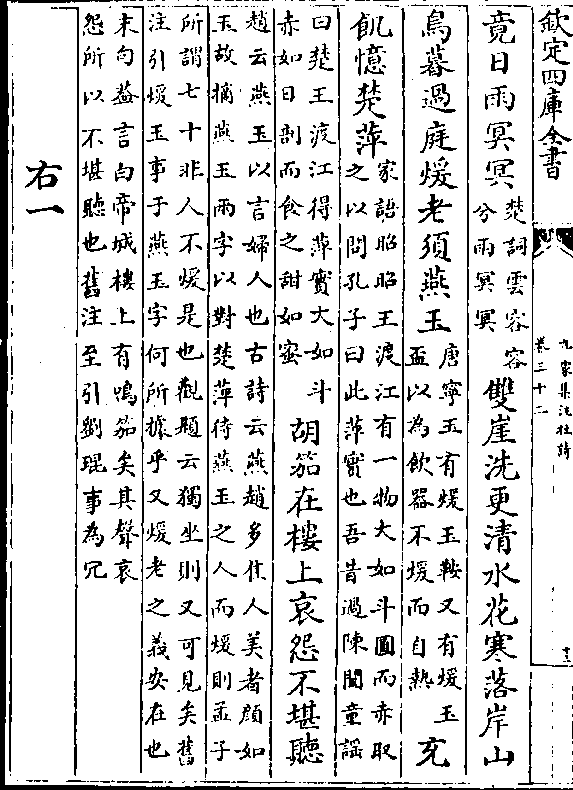 欽定四庫全書
九家集注杜詩
卷三十二
十三
竟日雨冥冥楚詞雲容容兮雨冥冥雙崖洗更清水花寒落岸山
鳥暮過庭煖老須燕玉唐寧玉有煖玉鞍又有煖玉盃以為飲器不煖而自熱充
飢憶楚萍家語昭昭王渡江有一物大如斗圓而赤取之以問孔子曰此萍實也吾昔過陳聞童謡
曰楚王渡江得萍實大如斗赤如日剖而食之甜如蜜胡笳在樓上哀怨不堪聽
趙云燕玉以言婦人也古詩云燕趙多佳人美者顔如
玉故摘燕玉兩字以對楚萍待燕玉之人而煖則孟子
所謂七十非人不煖是也觀題云獨坐則又可見矣舊
注引煖玉事于燕玉字何所據乎又煖老之義安在也
末句葢言白帝城樓上有鳴笳矣其聲哀
怨所以不堪聽也舊注至引劉琨事為冗
右一